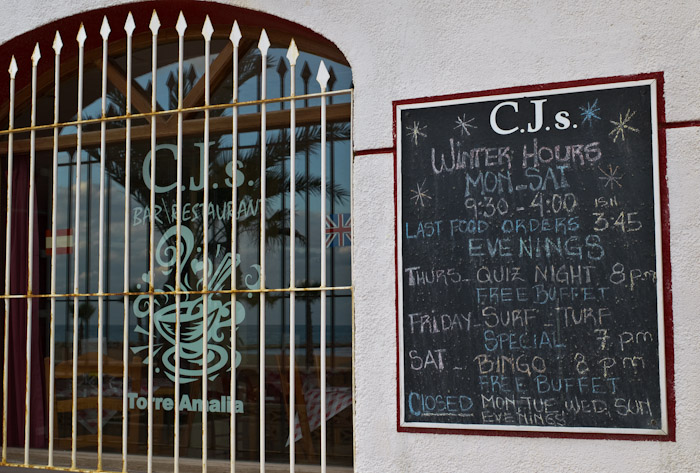 C.J.s.
BAR/RESTAURANT
Torre Amalia
C.J.s.
WINTER HOURS
MON_SAT
9:30-4:00
LAST FOOD ORDERS 3:45
EVENINGS
THURS_ QUIZ NIGHT 8pm
FREE BUFFET
FRIDAY_ SURF_TURF
SPECIAL 7 pm
SAT_ BINGO 8 pm
FREE BUFFET
CLOSED MON, TUE, WED, SUN
EVENINGS